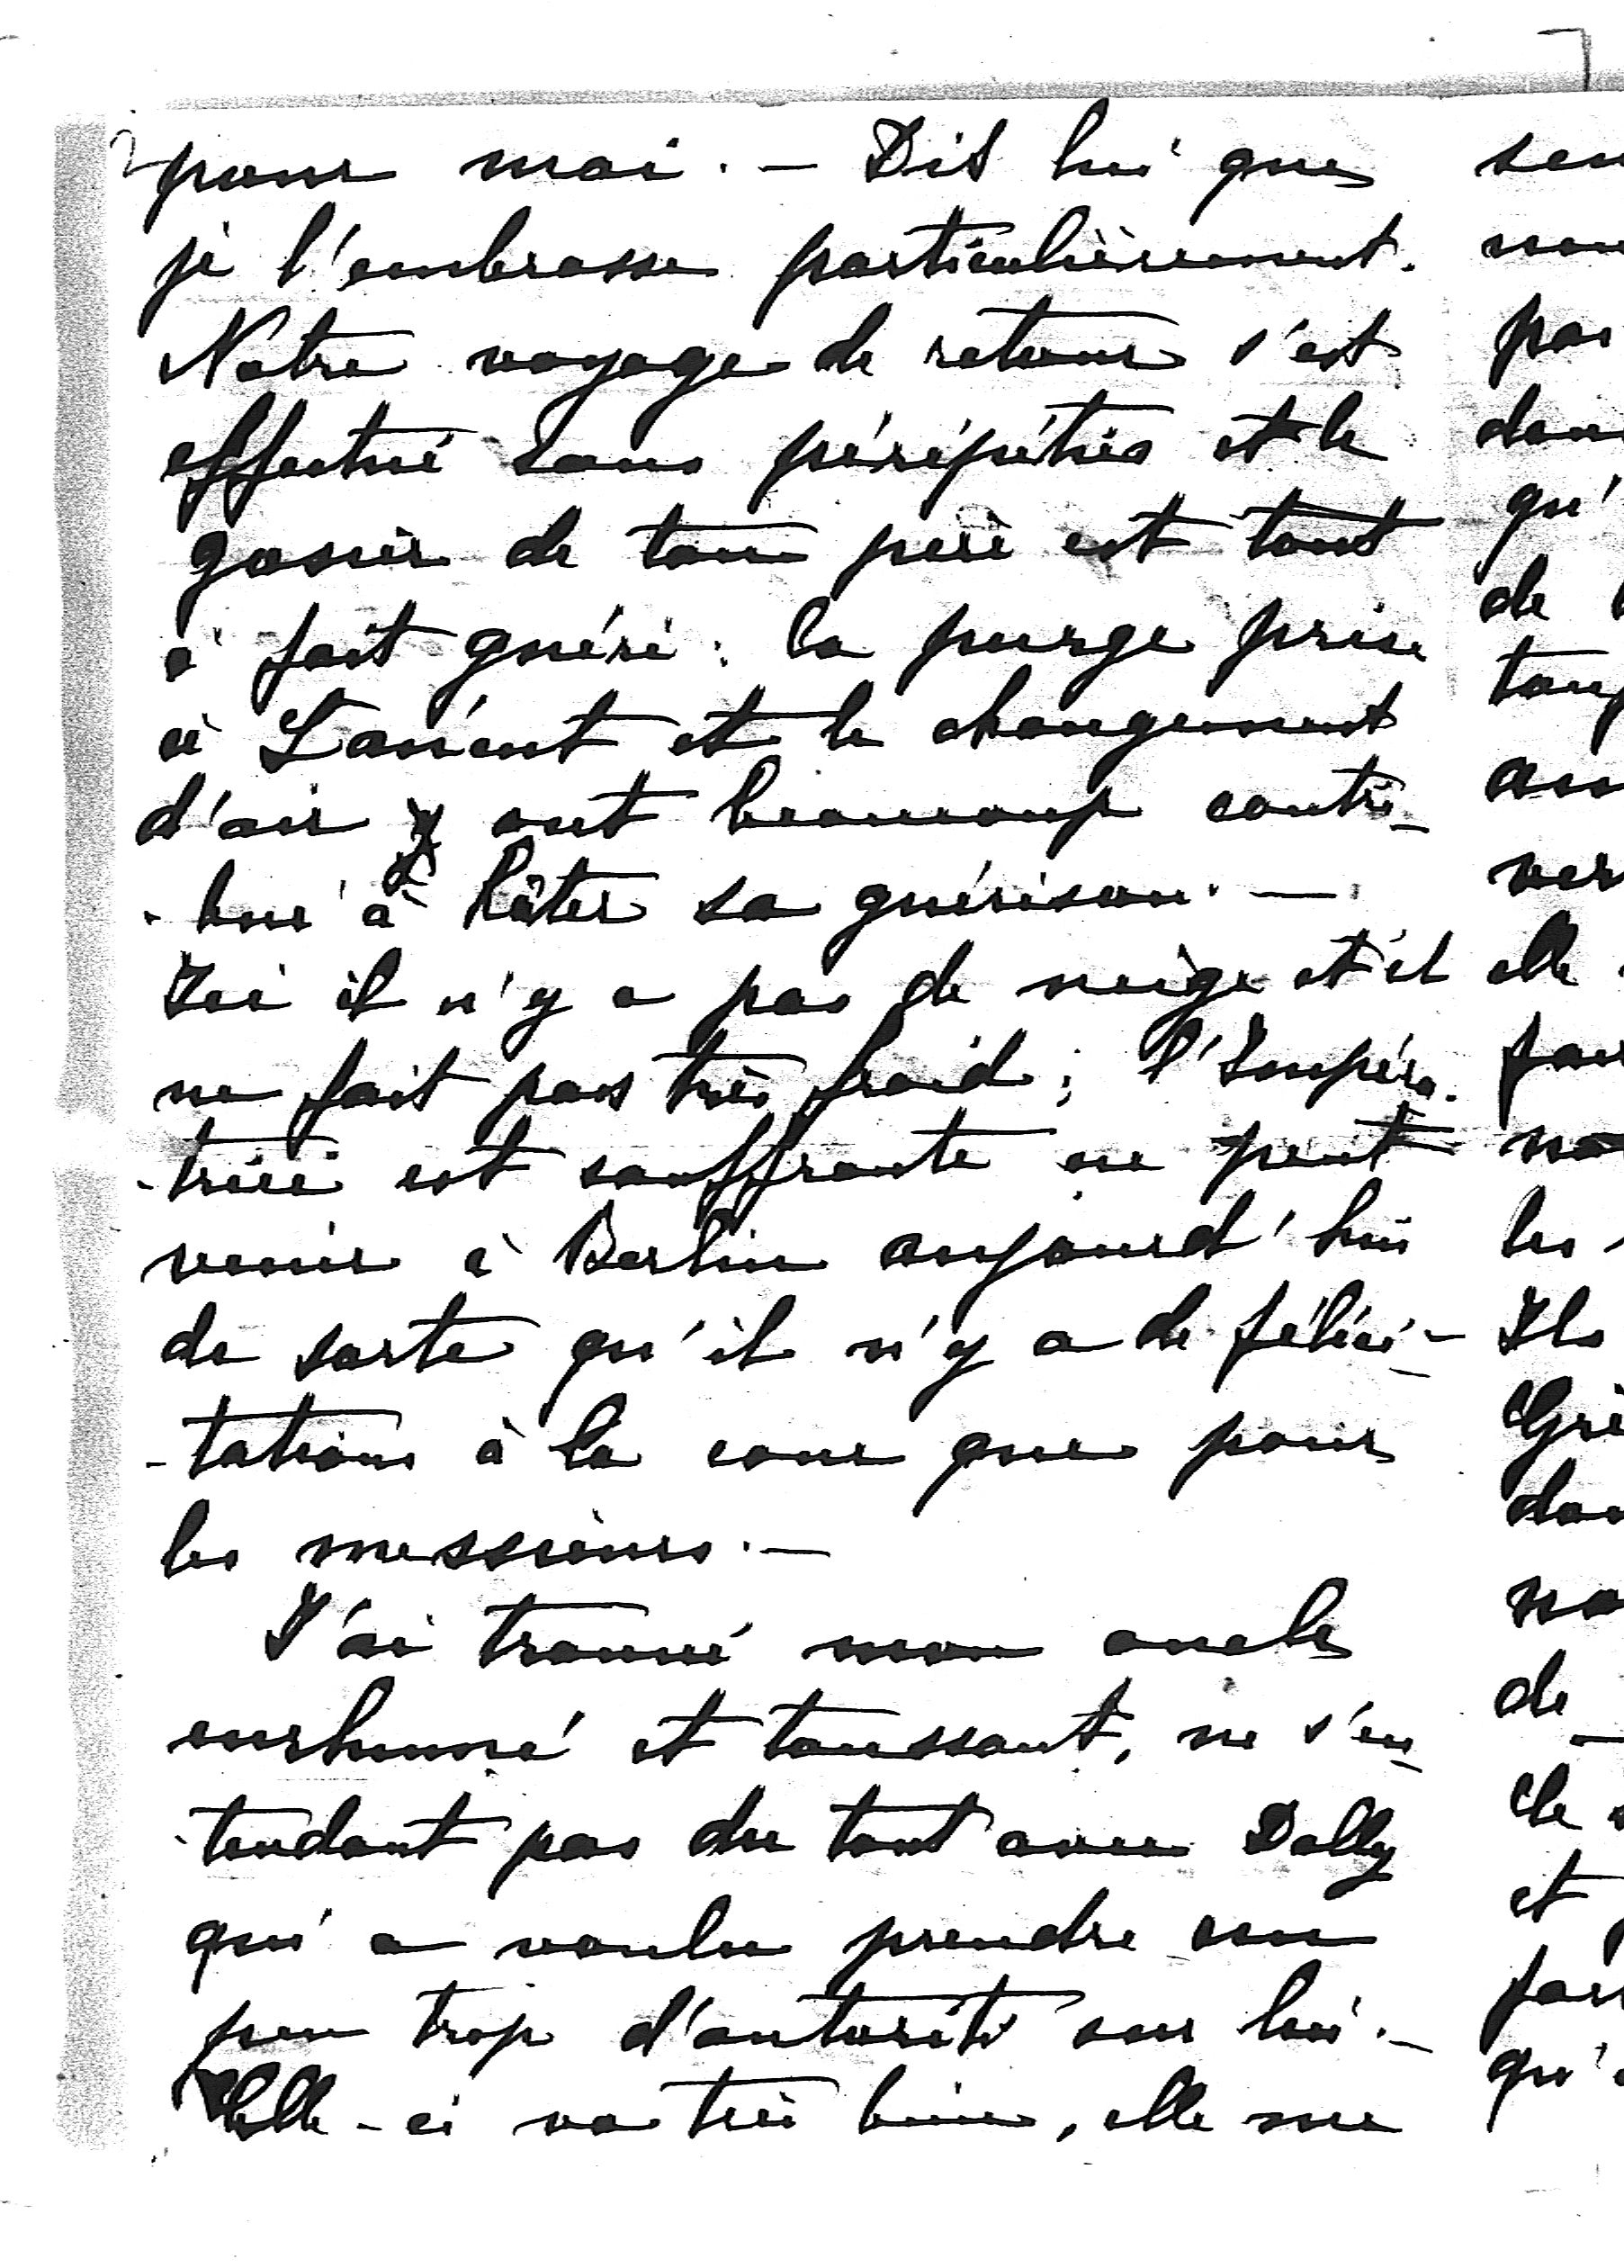 pour moi. — Dis lui que
je l'embrasse particulièrement.
Notre voyage de retour s'est
effectué sans péripéties et le
gosier de ton père est tout
à fait guéri : la purge prise
à et le changement
d'air y ont beaucoup contri-
-bué à hâter sa guérison. —
Ici il n'y a pas de neige et il
ne fait pas très froid ; l'Impéra-
-trice est souffrante ne peut
venir à Berlin aujourd'hui
de sorte qu'il n'y a de félici-
-tations à la cour que pour
les messieurs. —
J'ai trouvé mon oncle
enrhumé et toussant, ne s'en-
-tendant pas du tout avec Dolly
qui a voulu prendre un
peu trop d'autorité sur lui. —
Celle-ci va très bien, elle me
pas
qu'
de
elle
les
Ils
de
et
qu'